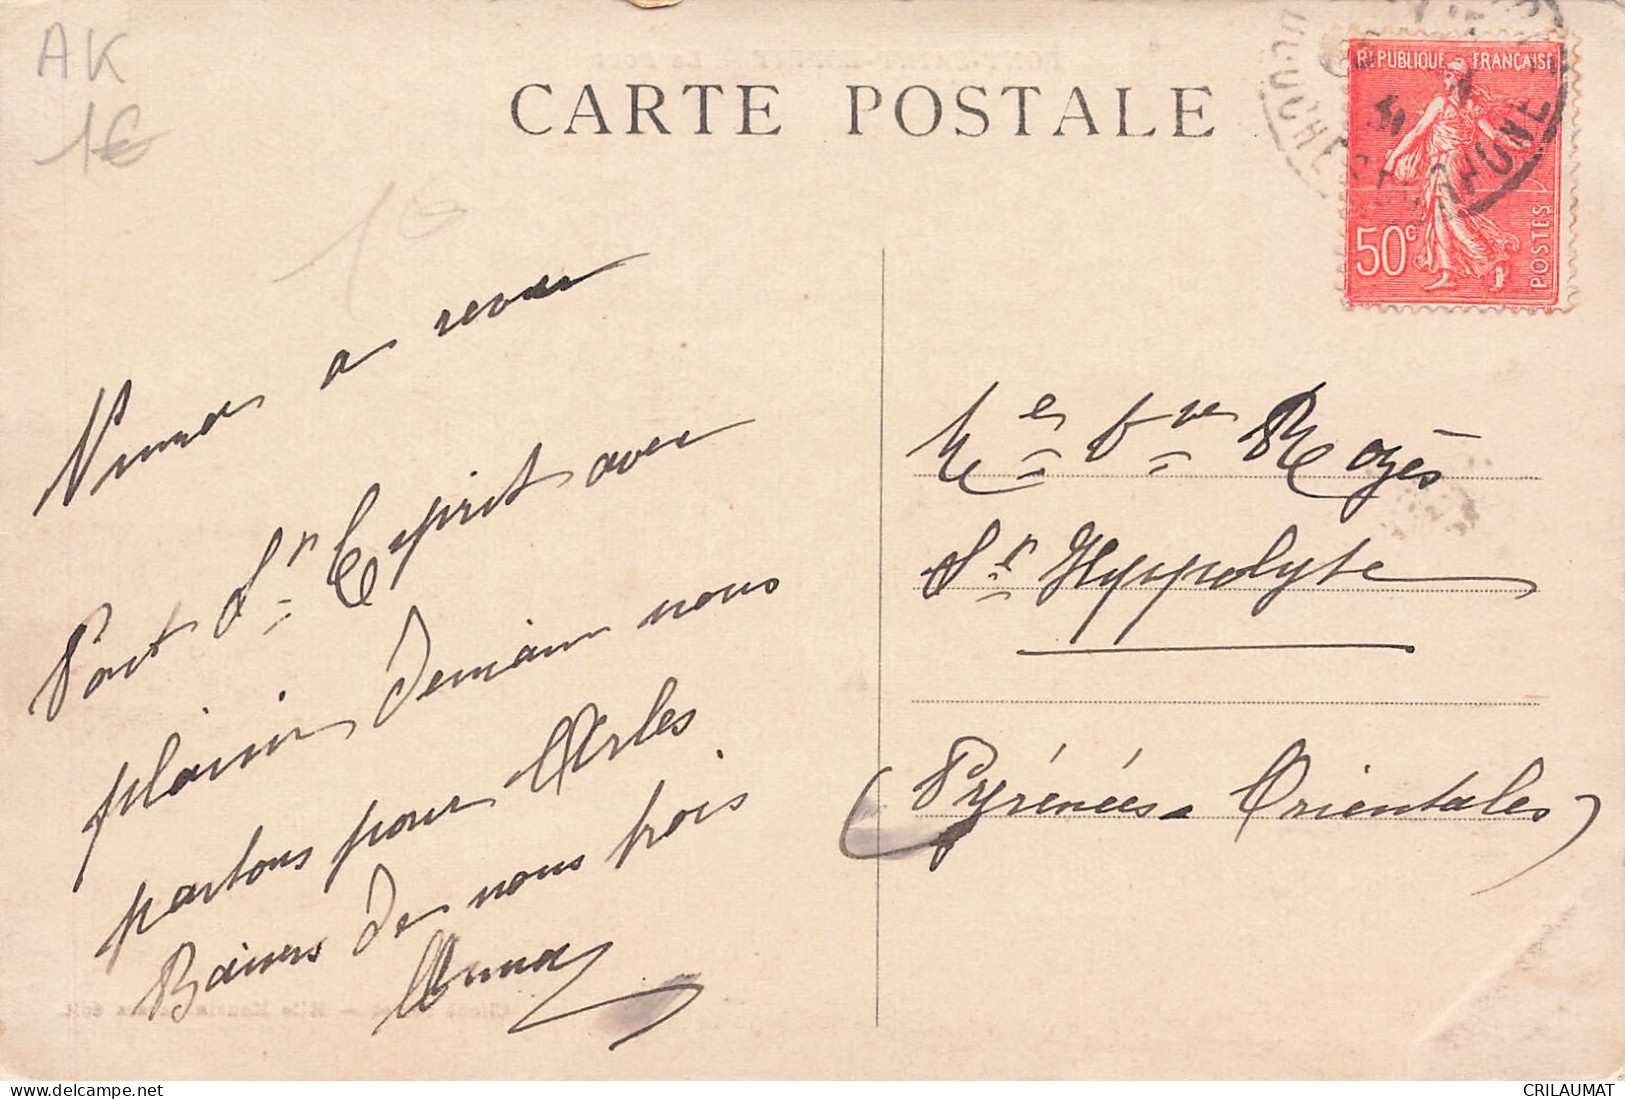 AK
1€
CARTE POSTALE
REPUBLIQUE FRANÇAISE
50c
POSTES
RHONE
Numa a revu
Pont St Esprit avec
plaisir Demain nous
partons pour Arles
Baisers de nous trois
Anna
Me Vve Rozès
St Hyppolyte
(Pyrénées-Orientales)
CRILAUMAT